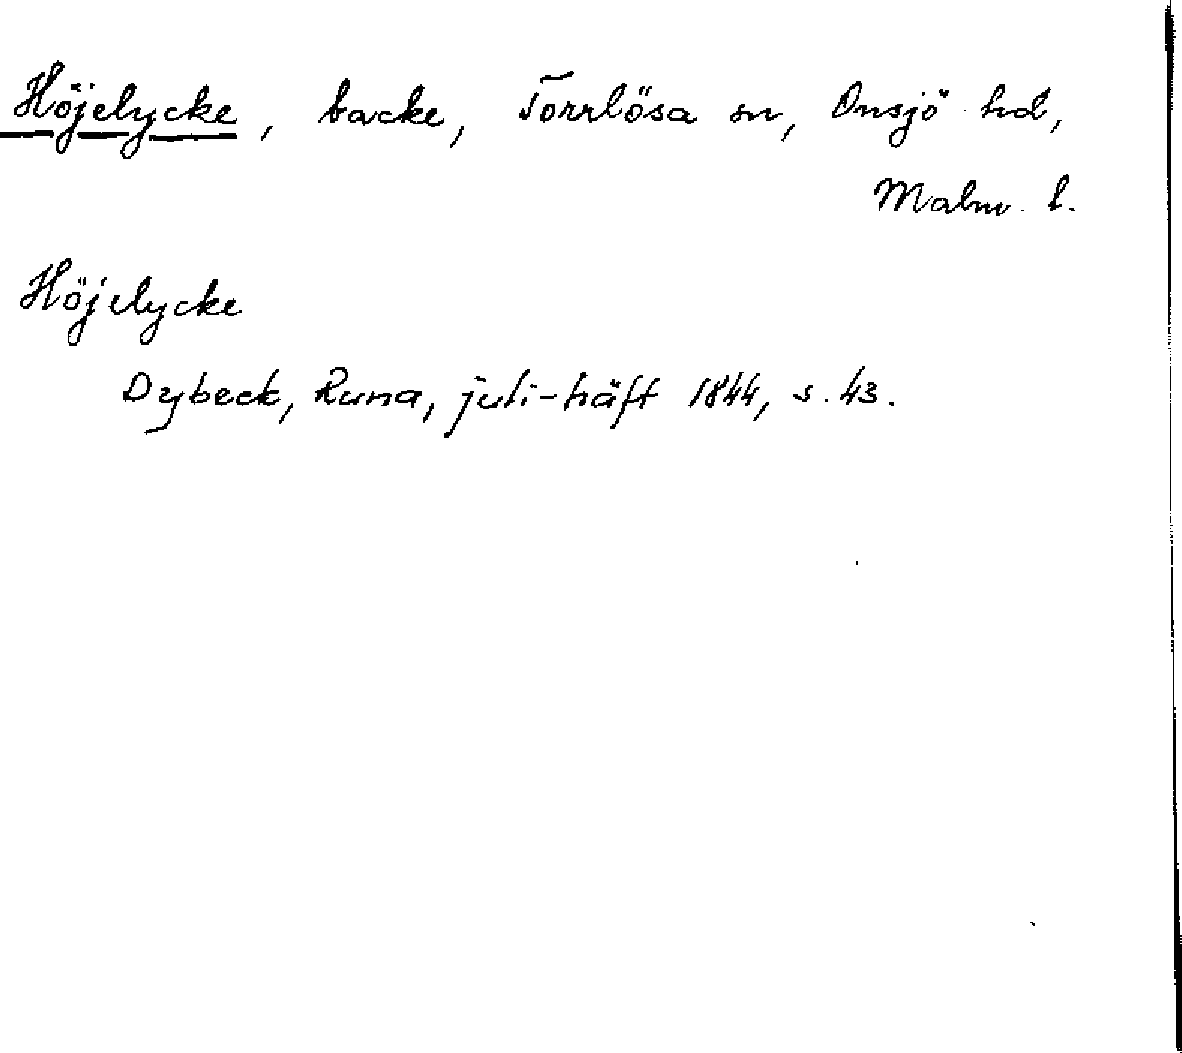 Höjelycke, backe, Torrlösa sn, Onsjö hd,
Malm. l.
Höjelycke
Dybeck, Runa, juli-häft 1844, s. 43.